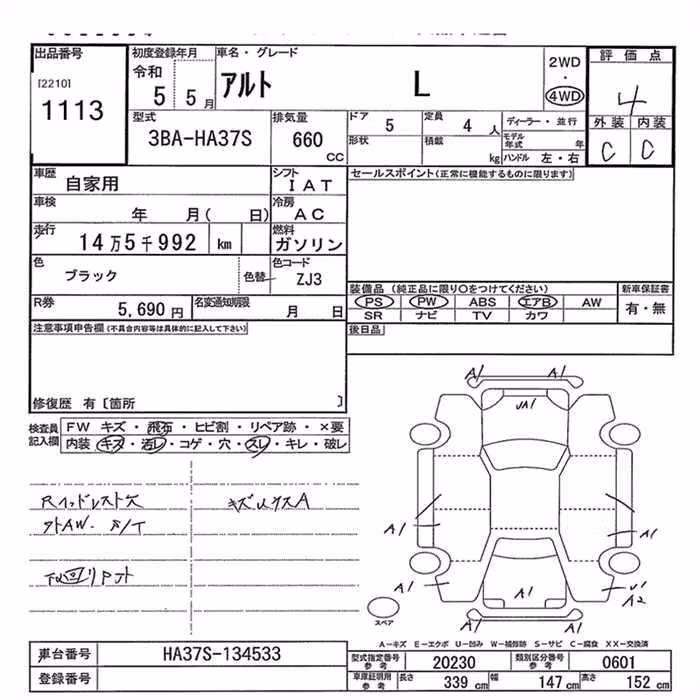 出品番号
[2210]
1113
初度登録年月
令和
5 5月
車名・グレード
アルト L
2WD
・
4WD
評価点
4
外装 内装
C C
型式
3BA-HA37S
排気量
660
CC
ドア
5
定員
4 人
形状
積載
kg
ディーラー・並行
モデル年式 年
ハンドル 左・右
車歴
自家用
シフト
IAT
車検
年 月( 日)
冷房
AC
走行
14万5千992 km
燃料
ガソリン
色
ブラック
色替
色コード
ZJ3
R券
5,690円
名変通知期限
月 日
セールスポイント(正常に機能するものに限ります)
装備品 (純正品に限り○をつけてください)
新車保証書
PS PW ABS エアB AW
SR ナビ TV カワ
有・無
後日品
注意事項申告欄(不具合内容等は具体的に記入して下さい)
修復歴 有〔箇所 〕
検査員記入欄
FW キズ・飛石・ヒビ割・リペア跡・×要
内装 キズ・汚レ・コゲ・穴・スレ・キレ・破レ
Rヘッドレスト欠
キズ
A1 A1
UA1
A1 A1
A1 A1
A2
A1 A1
スペア
A-キズ E-エクボ U-凹み W-補修跡 S-サビ C-腐食 XX-交換済
車台番号
HA37S-134533
登録番号
型式指定番号 参考
20230
類別区分番号 参考
0601
車庫証明用 参考
長さ 339 cm
幅 147 cm
高さ 152 cm